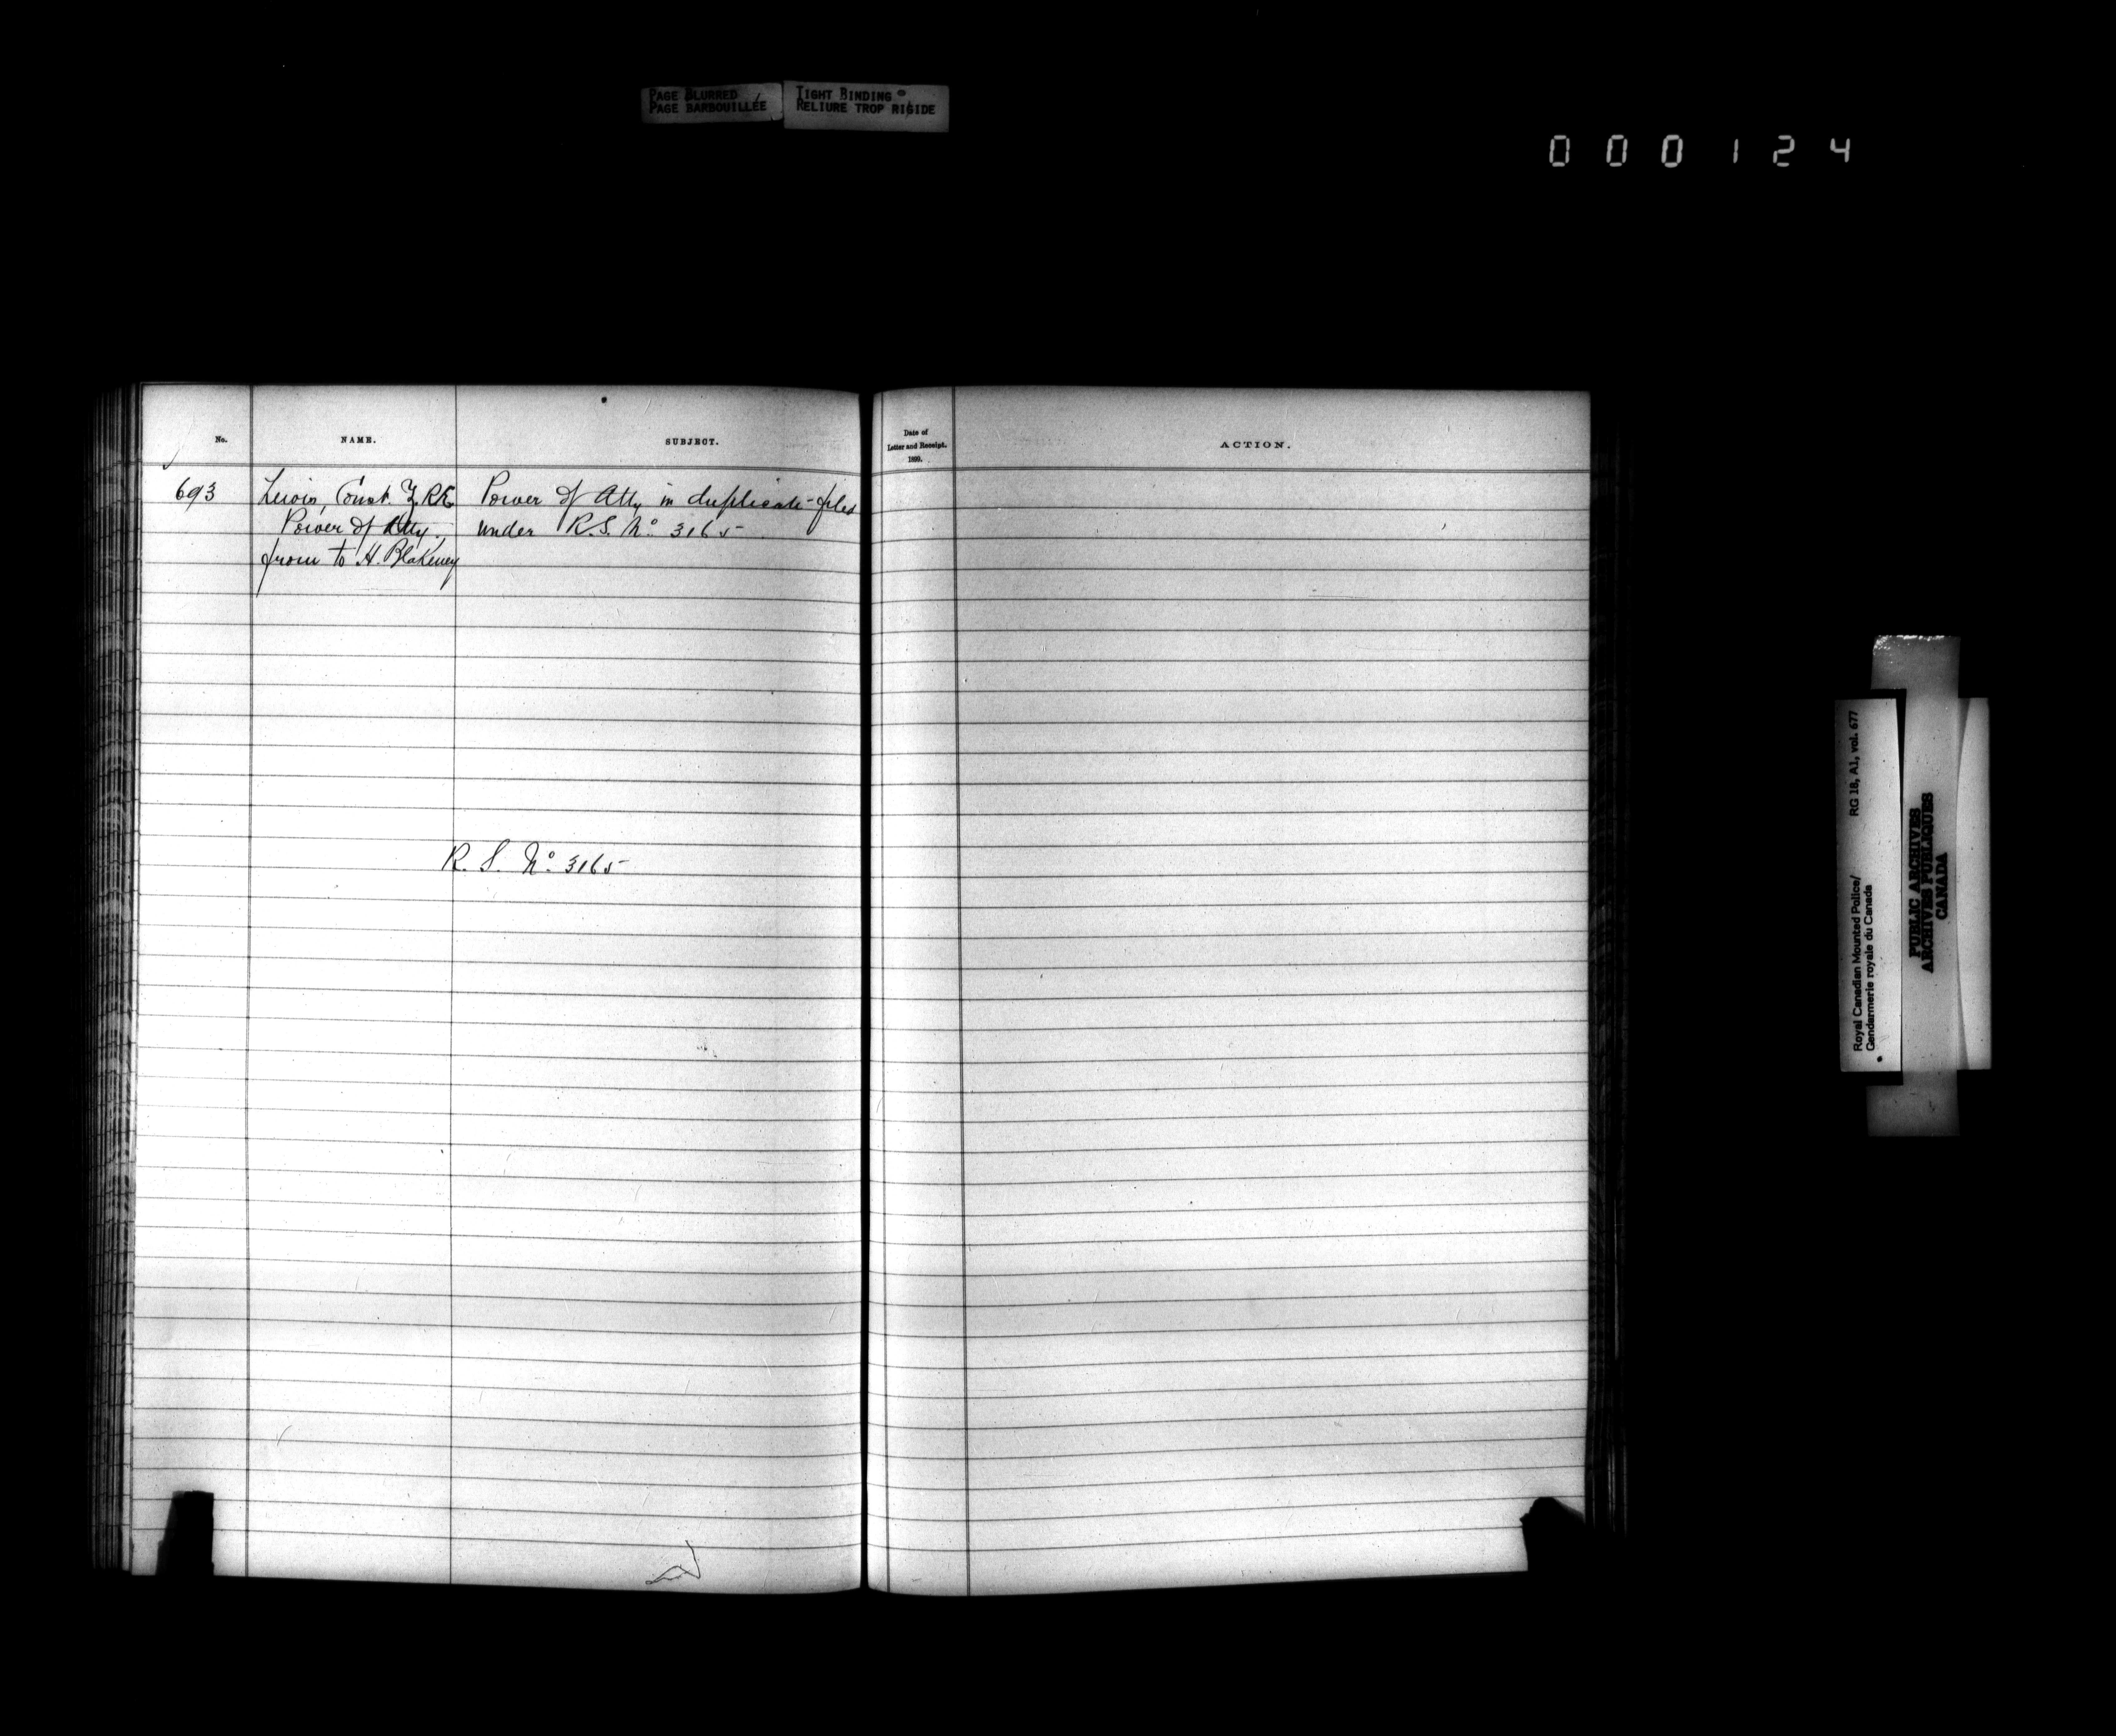 PAGE BLURRED
PAGE BARBOUILLÉE
TIGHT BINDING
RELIURE TROP RIGIDE
000124
No.
NAME.
SUBJECT.
Date of
Letter and Receipt.
1899.
ACTION.
693
Lewis, Const. Z. R.E.
Power of Atty in duplicate - filed
Power of Atty.
under R.S. No. 3165
from to H. Blakeney
R. S. No. 3165
Royal Canadian Mounted Police/
Gendarmerie royale du Canada
RG 18, A1, vol. 677
PUBLIC ARCHIVES
ARCHIVES PUBLIQUES
CANADA